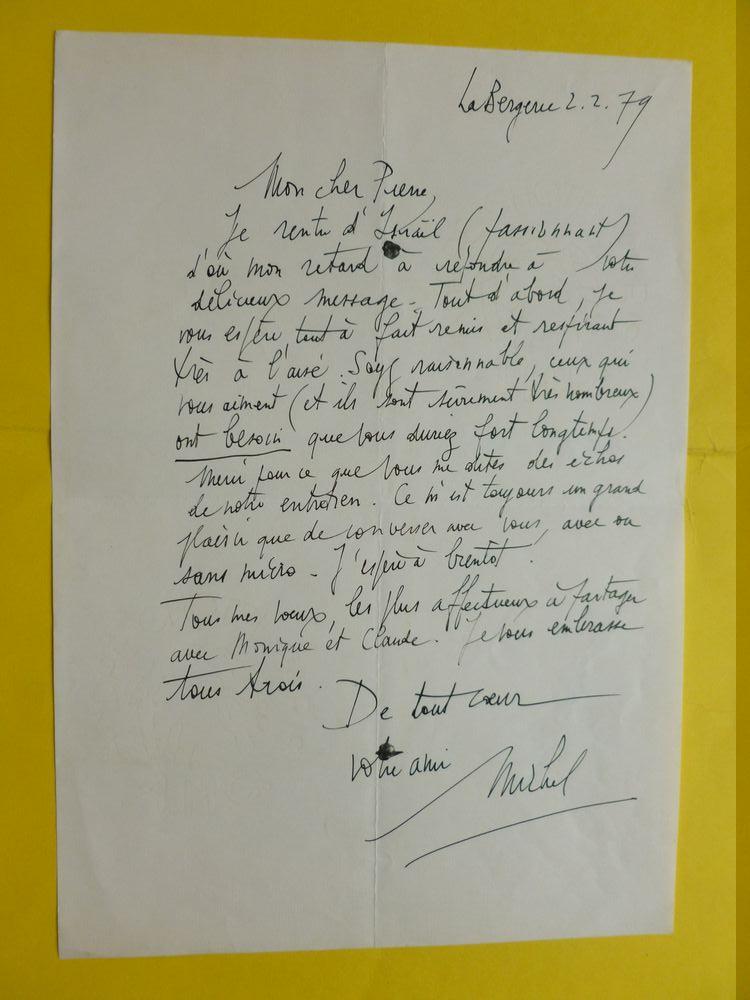 La Bergerie 2.2.79
Mon cher Pierre,
Je rentre d'Israël (passionnant)
d'où mon retard à répondre à votre
délicieux message. Tout d'abord, je
vous espère tout à fait remis et respirant
très à l'aise. Soyez raisonnable, ceux qui
vous aiment (et ils sont sûrement très nombreux)
ont besoin que vous duriez fort longtemps.
Merci pour ce que vous me dites des échos
de notre entretien. Ce m'est toujours un grand
plaisir que de converser avec vous, avec ou
sans micro. J'espère à bientôt.
Tous mes voeux, les plus affectueux à partager
avec Monique et Claude. Je vous embrasse
tous trois.
De tout coeur
votre ami
Michel